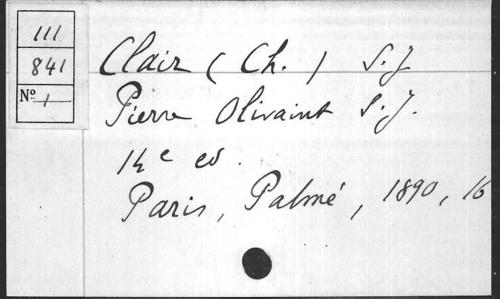 111
841
Nº 1
Clair (Ch.) S.J
Pierre Olivaint S.J.
14e ed.
Paris, Palmé, 1890, 16